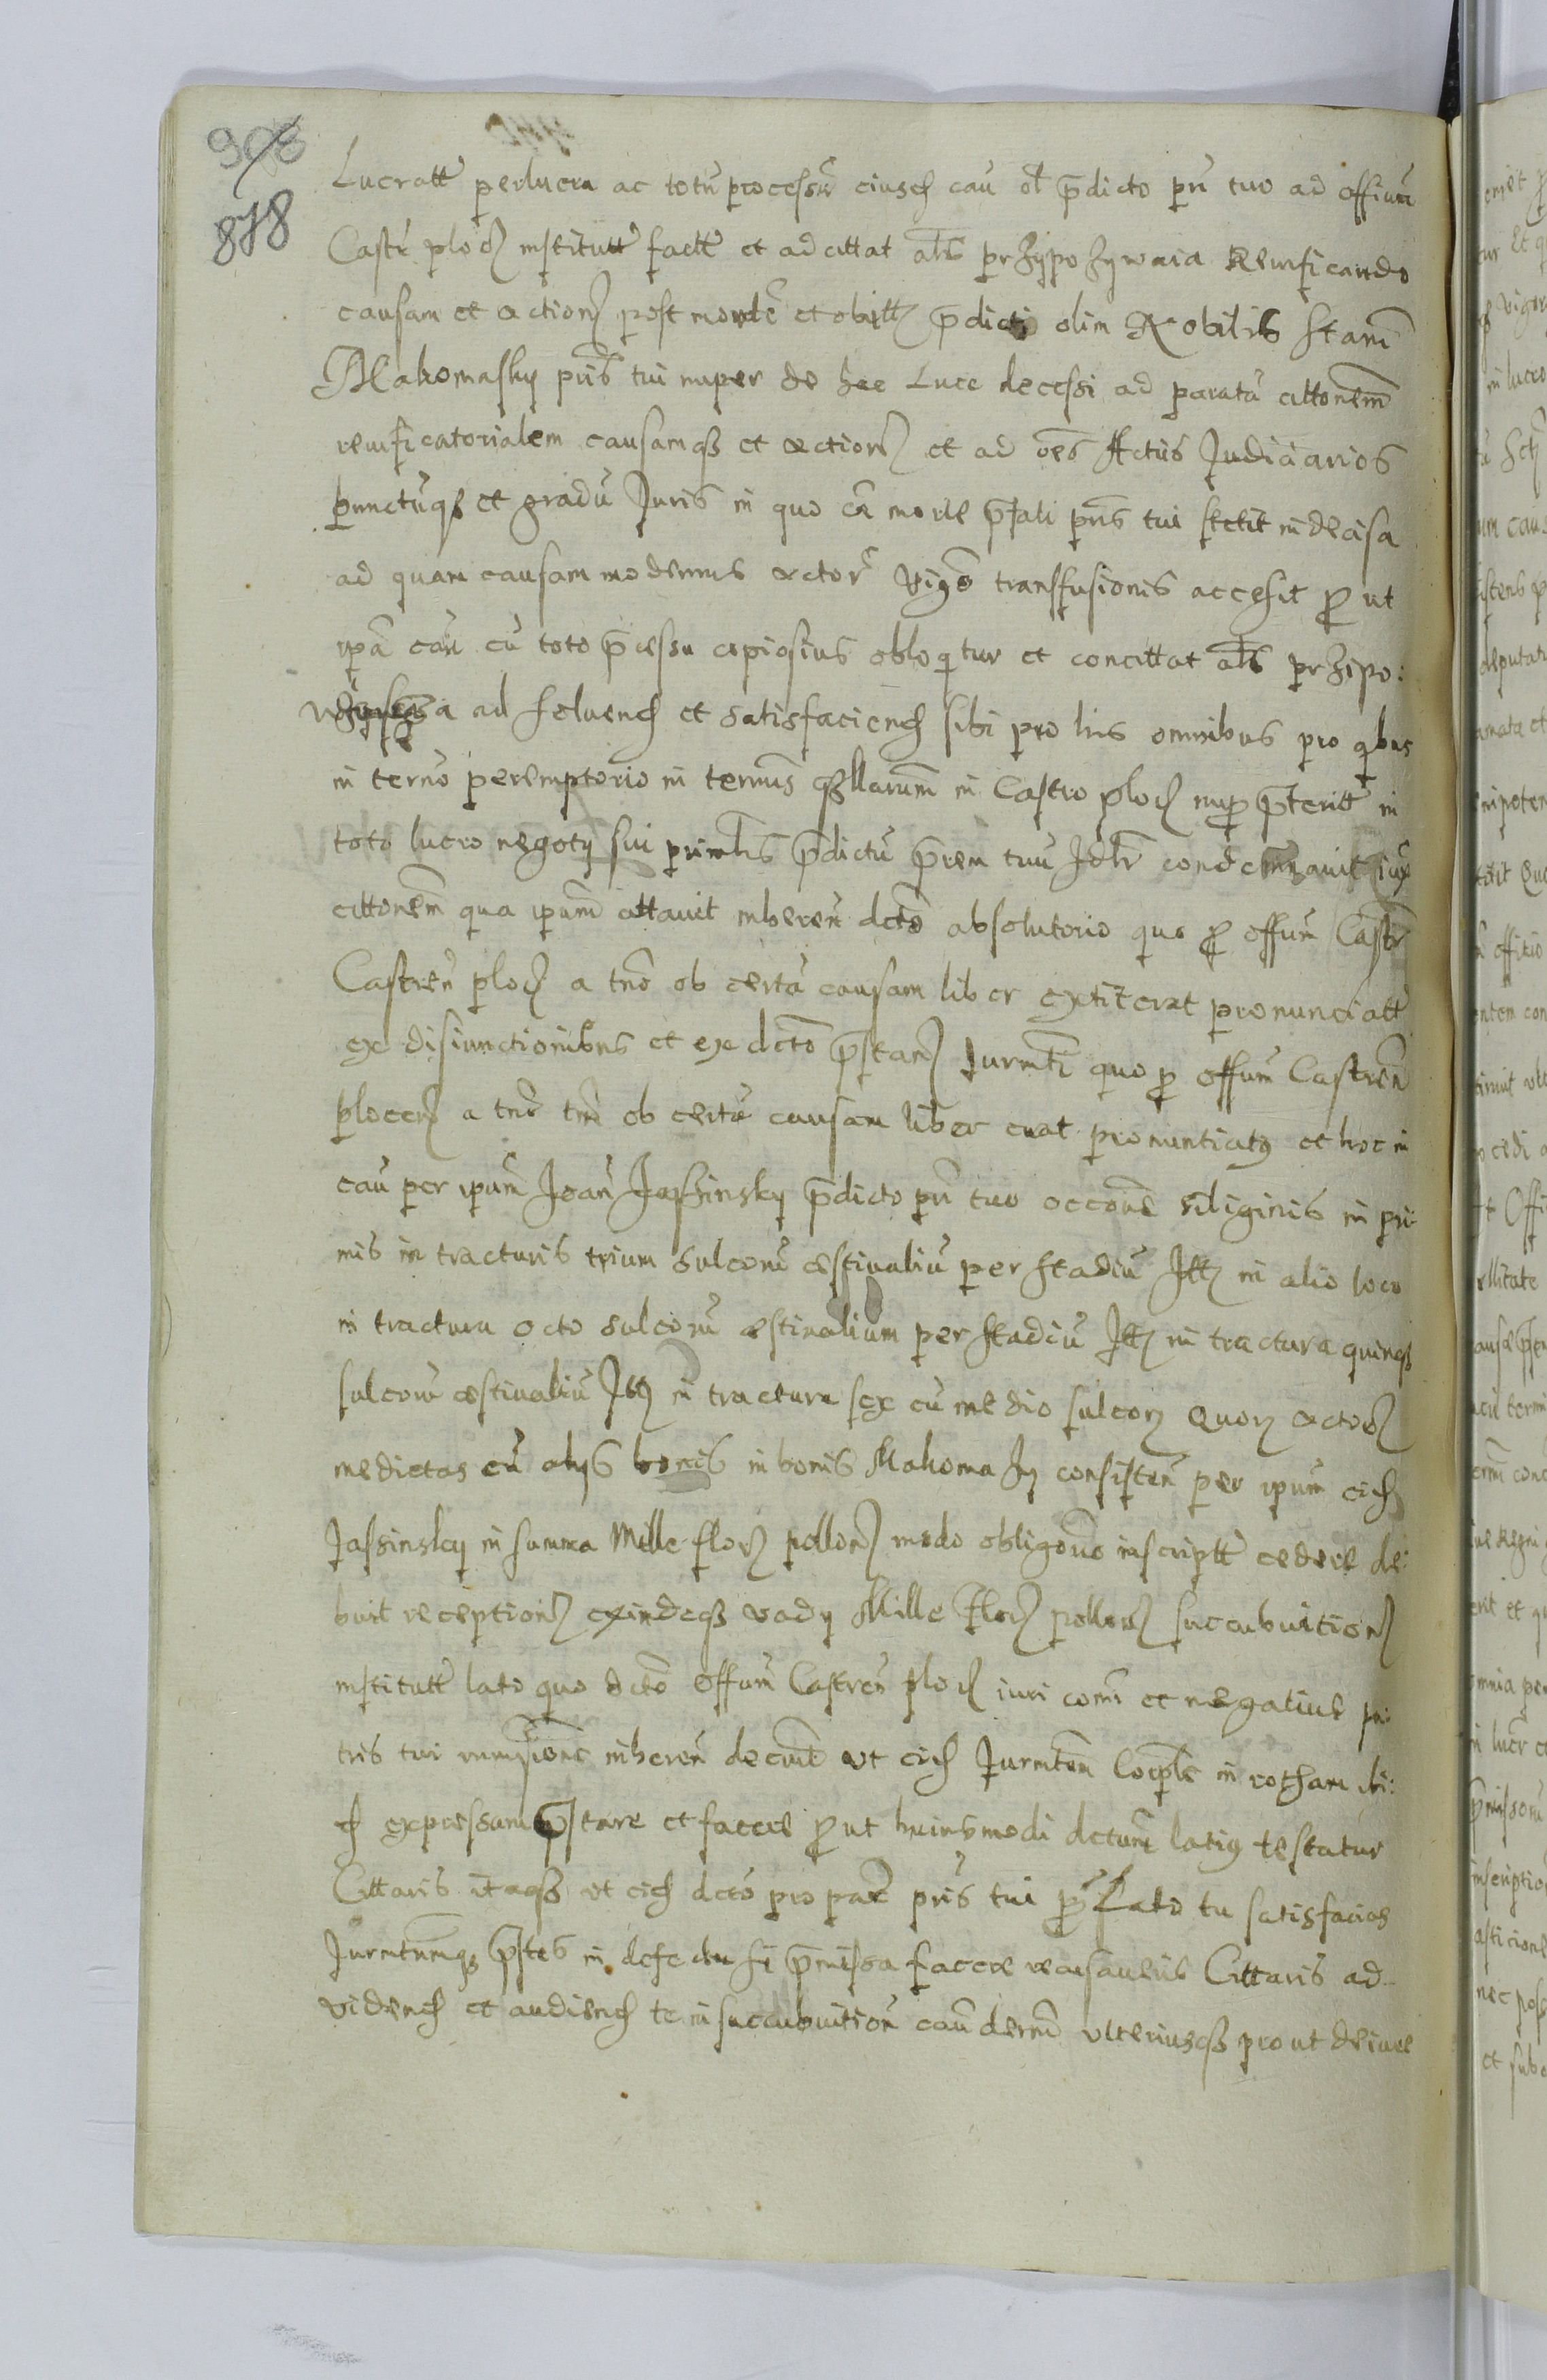 908
878
Lucratt perlucra ac totū processū eiusd cau ol p̄dicto pri tuo ad offium
Castr ploc institutt factt et ad cittat als przypozywaia Revificando
causam et action post mortē et obitt p̄dicti olim Nobilis Stani
Makomasky pris tui nuper de hac Luce decessi ad paratā cittonem
revificatorialem causamq3 et action et ad oēs Actus Judiciarios
punctūq3 et gradū Juris in quo cā morte p̄fati pris tui stetit indecisa
ad quam causam modernus actor vigo transfusionis accessit p̱ ut
ipā cau cū toto p̄cessu copiosius obloqitur et concittat als przipo:
a ad solvend et satisfaciend sibi pro his omnibus pro qbus
in terno peremptorio in terminis q3llarum in Castro ploc nup p̄teritt in
toto lucro negoty sui p̄dictū p̄rem tuū condemnavit iux
cittonem qua ipum cittavit inheren dcto absolutorio quo p̱ offum Castr
Castren ploc a tno ob certā causam liber extiterat pronunciatt
ex disiunctionibus et ex dcto p̄stan Jurmti quo p̱ offum Castren
plocen a tno ob certā causam liber erat pronuntiatq et hoc in
cau per ipum Joan Jassinsky p̄dicto pri tuo occone siliginis in pri:
mis in tracturis trium sulcorū æstivaliū per stadiū Itt in alio loco
in tractura octo sulcorū æstivalium per stadiū Itt in tractura quinq3
sulcorū æstivaliū Itt in tractura sex cū medio sulcor Quor actor
medietas cū alys bonis in bonis Makoma Jn consisten per ipum eid
Jassinsky in summa Mille flor pollon modo obligono inscriptt cedere de:
buit reception exindeq3 vady Mille Flor pollon succubuition
institutt lato quo dcto offum Castren ploc iuri comi et negative pa:
tris tui inheren decrevit ut eid Jurmtum in rotham ibi:
d expressam p̄stare et facere p̱ ut huiusmodi dctum latiq testatur
Cittaris itaq3 ut eid dcto pro parte pris tui lato tu satisfacias
Jurmtumq3 p̄stes in defectu si p̄missa facere recusaveris Cittaris ad
vidend et audiend te in succubuition cau ulteriusq3 prout de iure